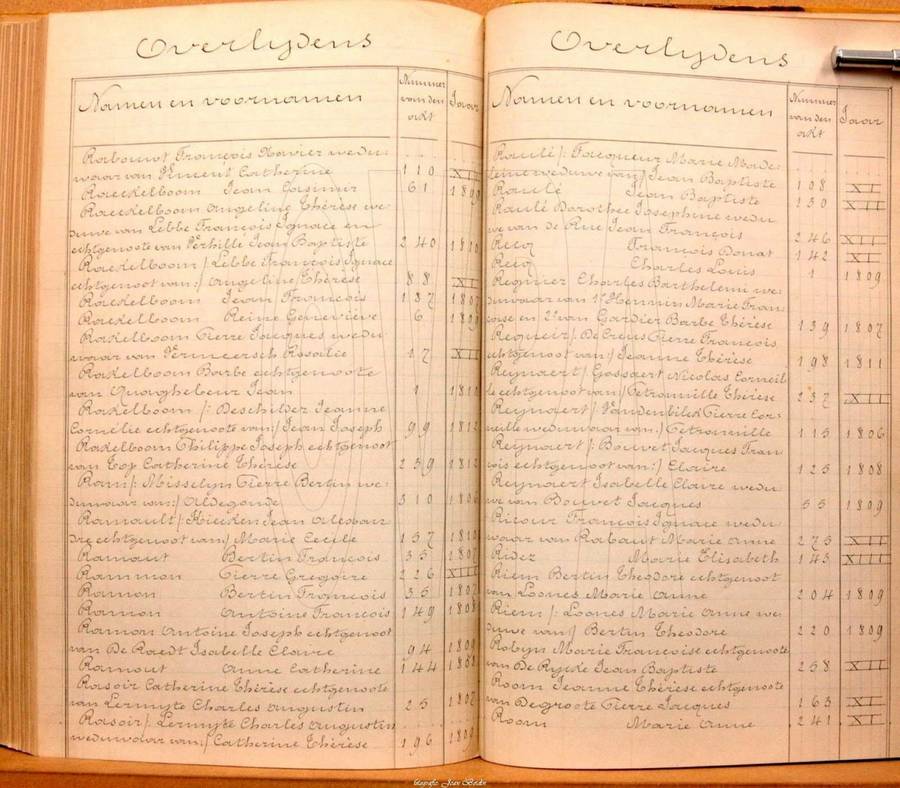 Overlijdens
Namen en voornamen Nummer van den akt Jaar
Rabouwt François Xavier wedu-
waar van Vincent Catherine 110 XII
Raekelboom Jean Casimir 61 1809
Raekelboom Angeline Thérèse we-
duwe van Lebbe François Ignace en
echtgenoote van Verhille Jean Baptiste 240 1810
Raekelboom /: Lebbe François Ignace
echtgenoot van :/ Angeline Thérèse 88
Raekelboom Jean François 137 1807
Raekelboom Reine Geneviève 6 1809
Rakelboom Pierre Jacques wedu-
waar van Vermeersch Rosalie 17
Rakelboom Barbe echtgenoote
van Quaghebeur Jean 1
Rakelboom /: Deschilder Jeanne
Cornélie echtgenoote van :/ Jean Joseph 99 1812
Rakelboom Philippe Joseph echtgenoot
van Top Catherine Thérèse 239 1812
Ram /: Misselyn Pierre Bertin we-
duwaar van :/ Aldegonde 310
Ramault /: Kiecken Jean Alexan-
dre echtgenoot van :/ Marie Cecile 157
Ramaut Bertin François 35 1807
Rammon Pierre Gregoire 226 XIII
Ramon Bertin François 35 1807
Ramon Antoine François 149 1808
Ramon Antoine Joseph echtgenoot
van De Raedt Isabelle Claire 94 1809
Ramout Anne Catherine 144
Rasoir Catherine Thérèse echtgenoote
van Lermyte Charles Augustin 25 1807
Rasoir /: Lermyte Charles Augustin
weduwaar van :/ Catherine Thérèse 196 1809
Overlijdens
Namen en voornamen Nummer van den akt Jaar
Raulé /: Jacqueur Marie Made-
leine weduwe van :/ Jean Baptiste 108 XI
Raulé Jean Baptiste 130 XII
Raulé Dorothee Josephine wedu-
we van de Rue Jean François 246 XII
Recq François Donat 142 XI
Recq Charles Louis 1 1809
Regnier Charles Barthelemi we-
duwaar van 1° Hennin Marie Fran-
çoise en 2° van Gardier Barbe Thérèse 139 1807
Regueir /: De Creus Pierre François
echtgenoot van :/ Jeanne Thérèse 198 1811
Reynaert /: Gossaert Nicolas Corneil-
le echtgenoot van :/ Petronille Thérèse 237 XIII
Reynaert /: Vandenbilck Pierre Cor-
neille weduwaar van :/ Petronille 115 1806
Reynaert /: Bouvet Jacques Fran-
çois echtgenoot van :/ Claire 125 1808
Reynaert Isabelle Claire wedu-
we van Bouvet Jacques 55 1809
Ricour François Ignace wedu-
waar van Rabaut Marie Anne 273 XII
Ridez Marie Elisabeth 143 XIII
Riem Bertin Theodore echtgenoot
van Loones Marie Anne 204 1809
Riem /: Loones Marie Anne we-
duwe van :/ Bertin Theodore 220 1809
Robyn Marie Francoise echtgenoote
van De Rycke Jean Baptiste 258 XII
Room Jeanne Thérèse echtgenoote
van Degroote Pierre Jacques 163 XI
Room Marie Anne 241 XI
fotografie: Jean Bordin